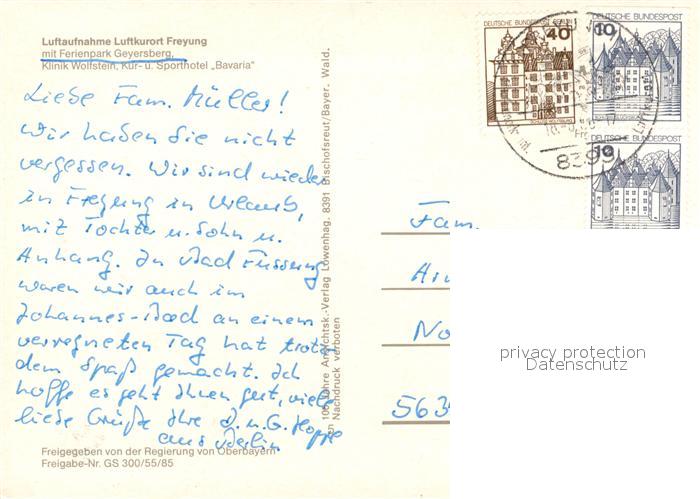 Luftaufnahme Luftkurort Freyung
mit Ferienpark Geyersberg,
Klinik Wolfstein, Kur- u. Sporthotel „Bavaria"
Liebe Fam. Müller!
Wir haben Sie nicht
vergessen. Wir sind wieder
in Freyung in Urlaub,
mit Tochter u. Sohn u.
Anhang. In Bad Füssing
waren wir auch im
Johannes-Bad an einem
verregneten Tag hat trotz
dem Spaß gemacht. Ich
hoffe es geht Ihnen gut, viele
liebe Grüße Ihre J. u. G. Hoppe
aus Berlin
Freigegeben von der Regierung von Oberbayern
Freigabe-Nr. GS 300/55/85
100 Jahre Ansichtsk.-Verlag Löwenhag. 8391 Bischofsreut/Bayer. Wald.
Nachdruck verboten
DEUTSCHE BUNDESPOST BERLIN
40
DEUTSCHE BUNDESPOST
10
DEUTSCHE BUNDESPOST
10
8393
Fam.
No
563
privacy protection
Datenschutz